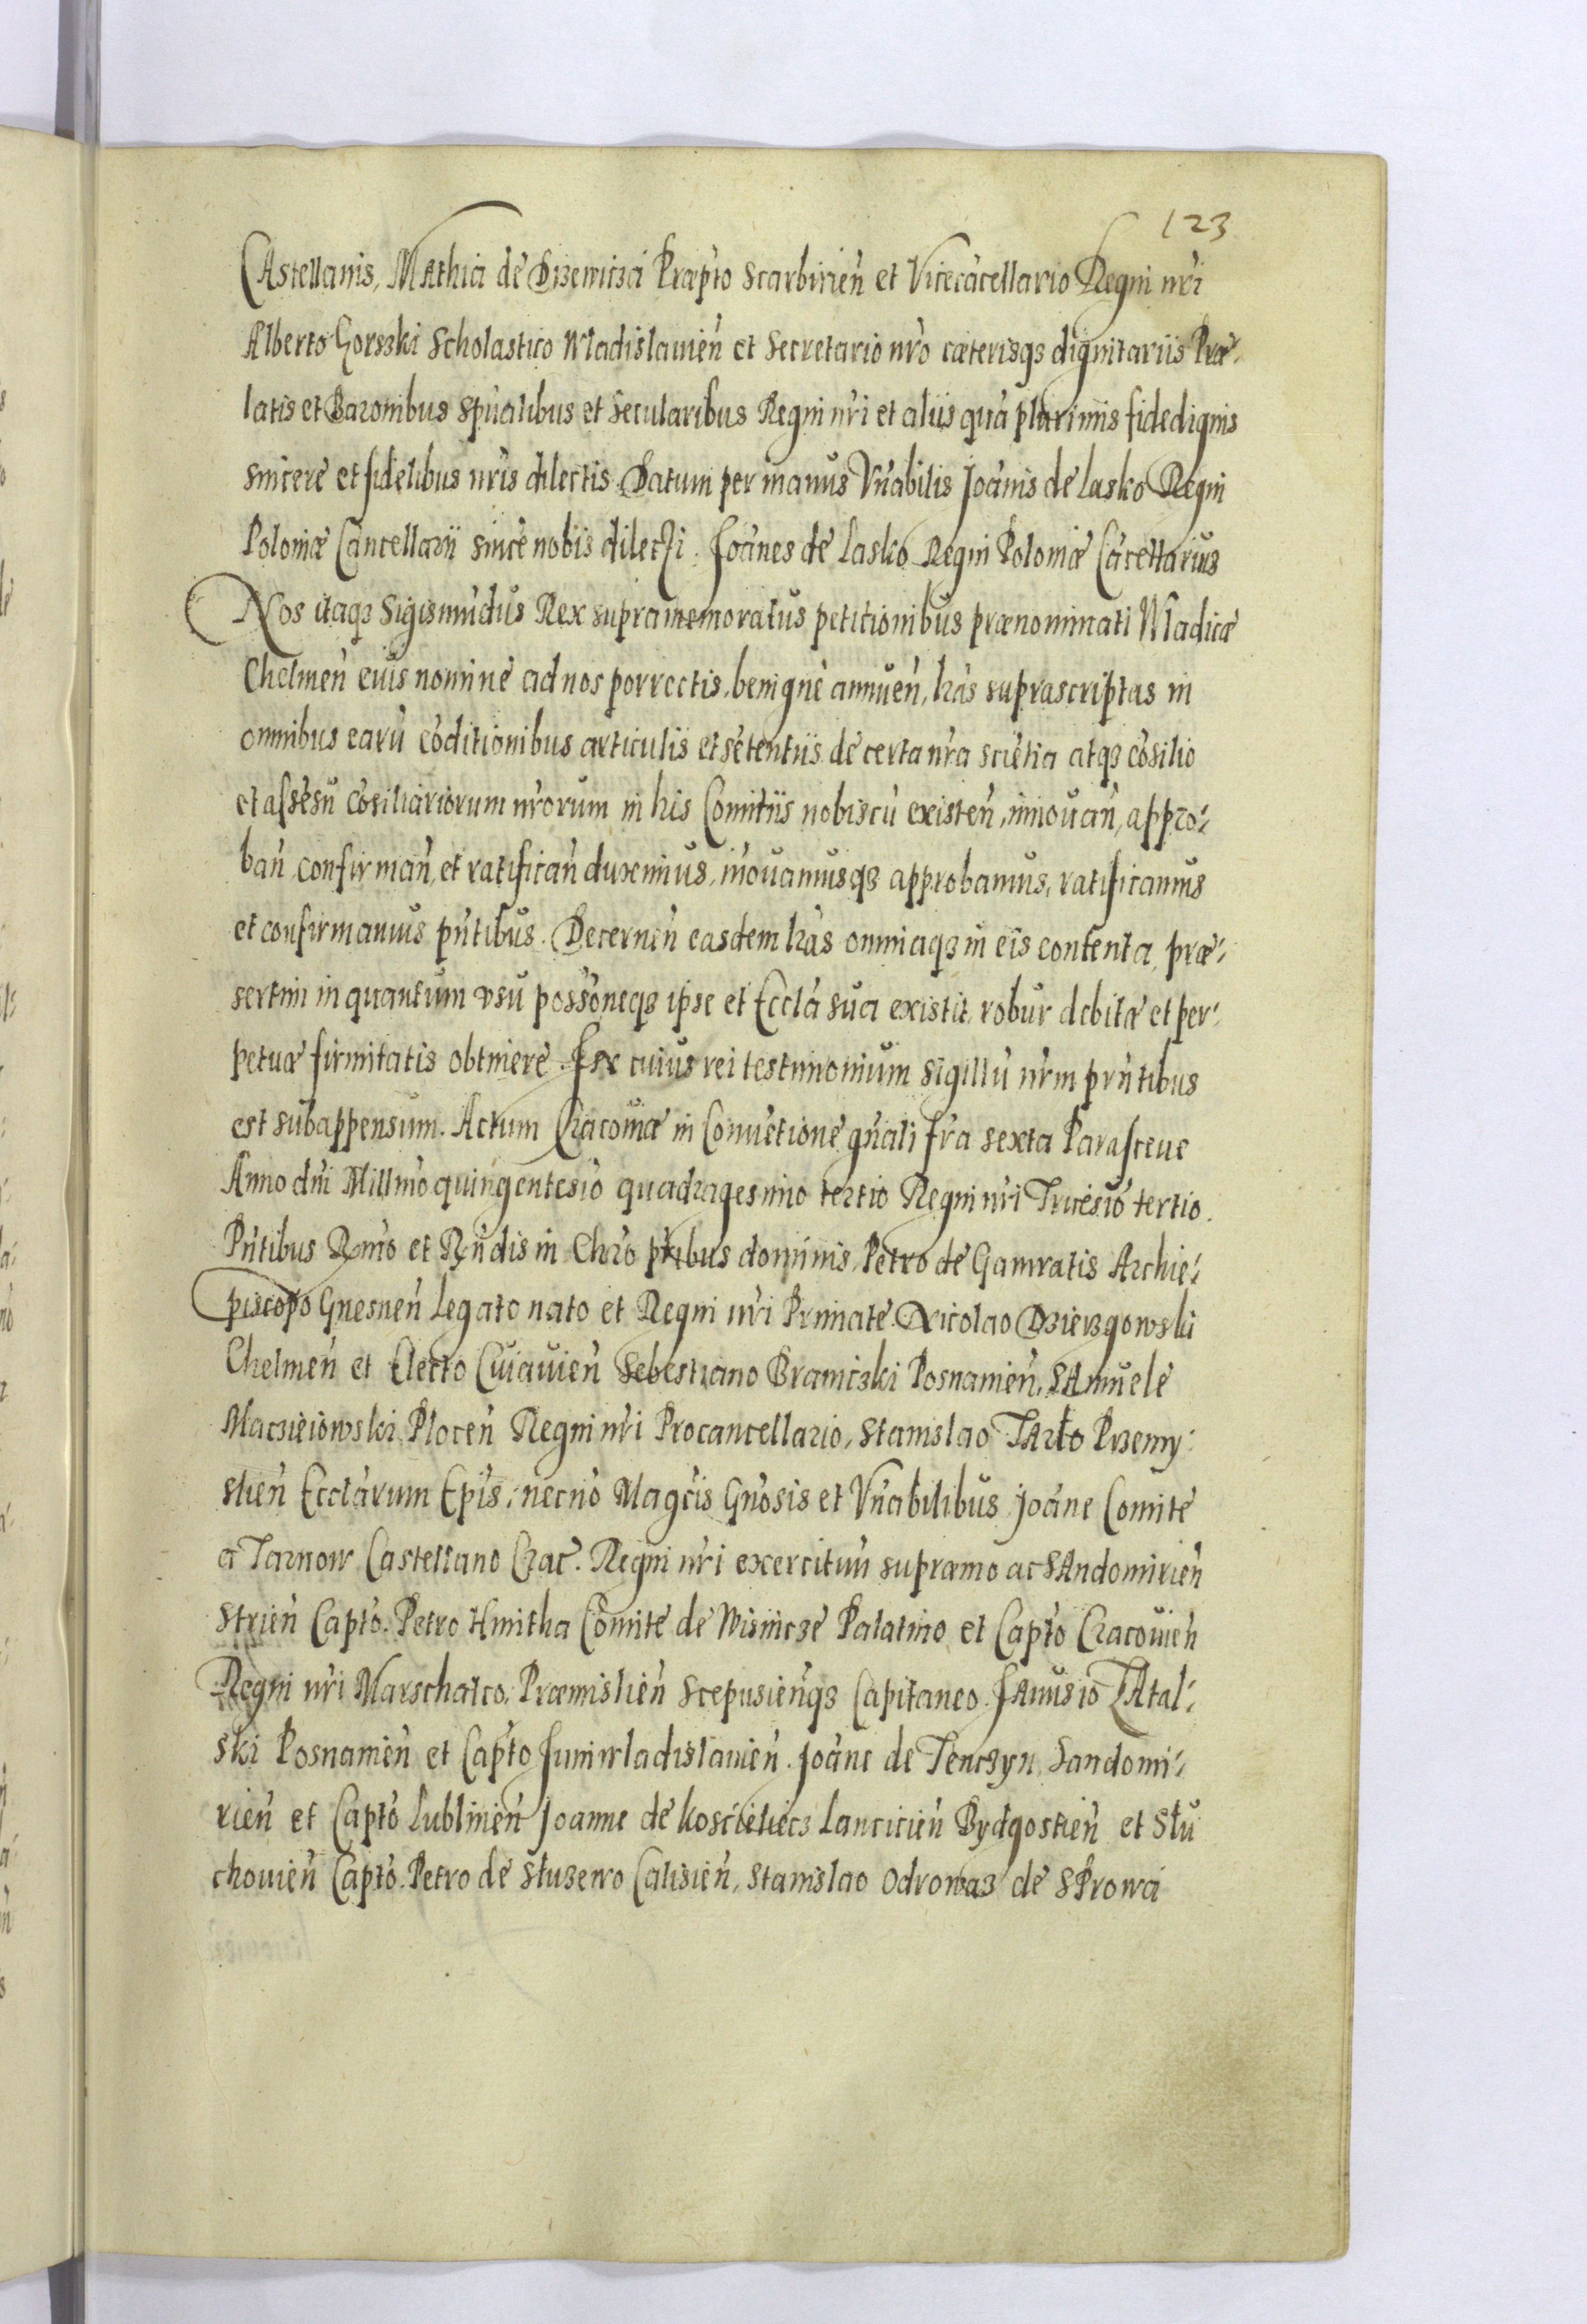 123
CAstellanis, MAthia de Drzewicza Præpto Scarbirień et Vicecācellario Regni nr̄i
Alberto Gorszki Scholastico Wladislauień et Secretario nr̄o cæterisqз dignitariis Præ-
latis et Baronibus spūalibus et secularibus Regni nr̄i et aliis quā plurimis fidedignis
sincere et fidelibus nr̄is dilectis. Datum per manus Vn̄abilis Joānis de Lasko Regni
Poloniæ Cancellarii sincē nobis dilecti. Joānes de Lasko Regni Poloniæ Cācellarius
Nos itaqз Sigismūdus Rex supramemoratus petitionibus prænominati Mladicæ
Chelmeń eius nomine ad nos porrectis, benigne annueń, hās suprascriptas in
omnibus earū cōditionibus articulis et sētentiis de certa nr̄a sciētia atqз cōsilio
et assēsu cōsiliariorum nr̄orum in his Comitiis nobiscū existeń, innouań, appro-
bań confirmań, et ratificań duximus, inouamusqз approbamus, ratificamus
et confirmamus pn̄tibus. Decerneń easdem hās omniaqз in eis contenta, præ-
sertim in quantum vsu possōneqз ipse et Eccl̄a sua existit, robur debitæ et per-
petuæ firmitatis obtinere. In cuius rei testimonium Sigillū nr̄m prn̄tibus
est subappensum. Actum Cracouiæ in Conuētione gn̄ali fr̄a sexta Parasceue
Anno dn̄i Millmō quingentesio quadragesimo tertio Regni nr̄i Tricēsio tertio.
Pn̄tibus Rm̄o et Rn̄dis in Chr̄o pr̄ibus dominis, Petro de Gamratis Archie-
piscopo Gneseń Legato nato et Regni nr̄i Primate. Nicolao Dzierzgowski
Chelmeń et Electo Cuiauień Sebestiano Braniczki Posnanień, SAmuele
Macieiowski Ploceń Regni nr̄i Procancellario, Stanislao TArlo Przemy-
slień Eccl̄arum Ep̄is, necnō Magc̄is Gn̄osis et Vn̄abilibus Joāne Comite
a Tarnow Castellano Crac̄. Regni nr̄i exercituū supræmo ac SAndomirień
Strień Capto. Petro Kmitha Comite de Wisnicze Palatino et Capto Cracouień
Regni nr̄i Marschalco, Præmislień Scepusieńqз Capitaneo. JAnusio LAtal-
ski Posnanień et Capto Juniwladislauień. Joāne de Tenczyn Sandomi-
rień et Capto Lublinień Joanne de Koscieliecz Lancicień Bydgostień et Słu
chouień Capto. Petro de Słuzewo Calisień, Stanislao Odrowaz de SProwa